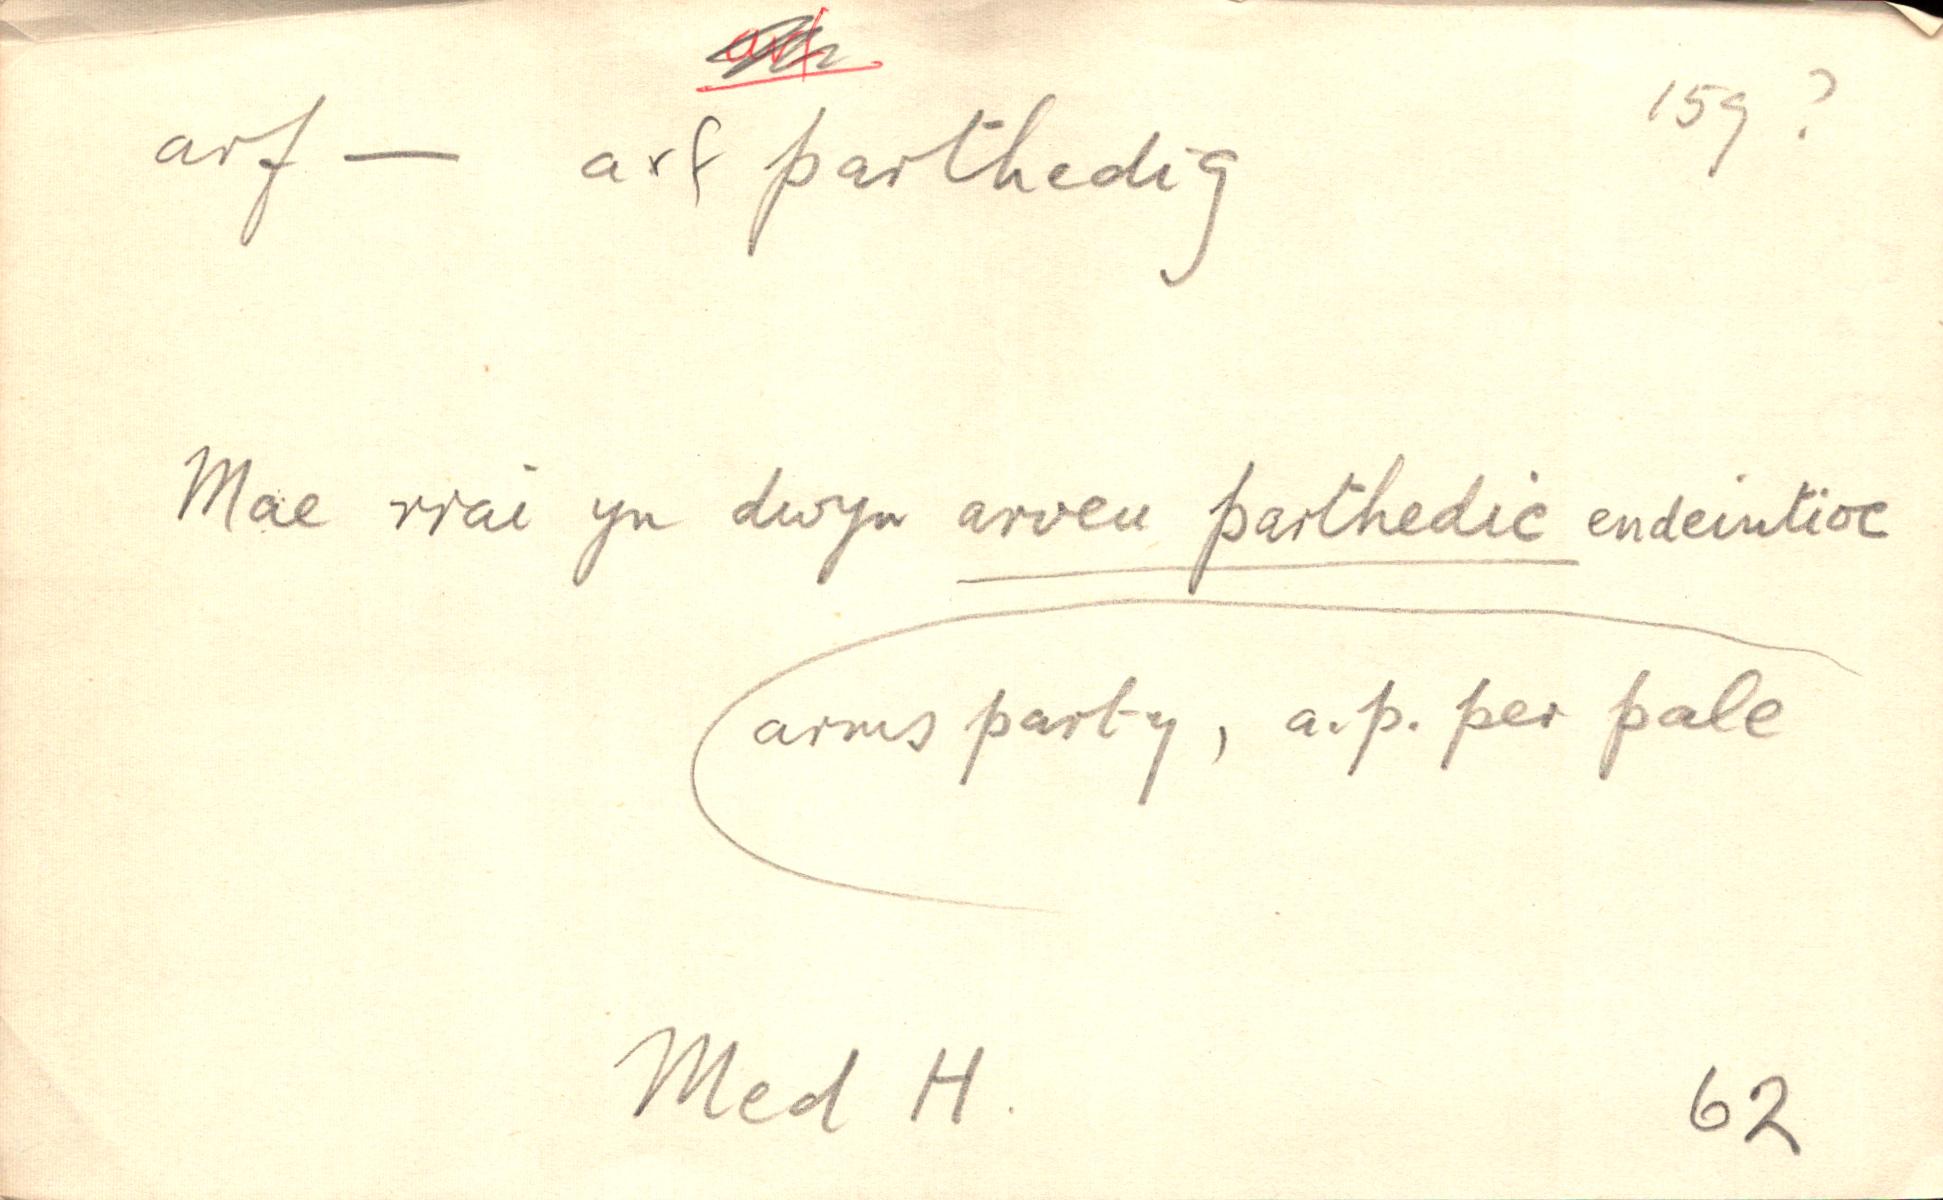 arf
arf — arf parthedig 159 ?
Mae rrai yn dwyn arveu parthedic endeintïoc
arms party, a.p. per pale
Med H. 62